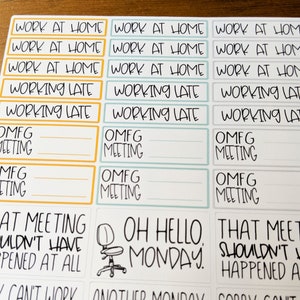 WORK AT HOME WORK AT HOME WORK AT HOME
WORK AT HOME WORK AT HOME WORK AT HOME
WORK AT HOME WORK AT HOME WORK AT HOME
WORKING LATE WORKING LATE WORKING LATE
WORKING LATE WORKING LATE WORKING LATE
OMFG OMFG OMFG
MEETING MEETING MEETING
OMFG OMFG OMFG
MEETING MEETING MEETING
THAT MEETING OH HELLO, THAT MEETING
SHOULDN'T HAVE MONDAY. SHOULDN'T HAVE
HAPPENED AT ALL HAPPENED A
SORRY CAN'T WORK ANOTHER MONDAY SORRY CAN'T